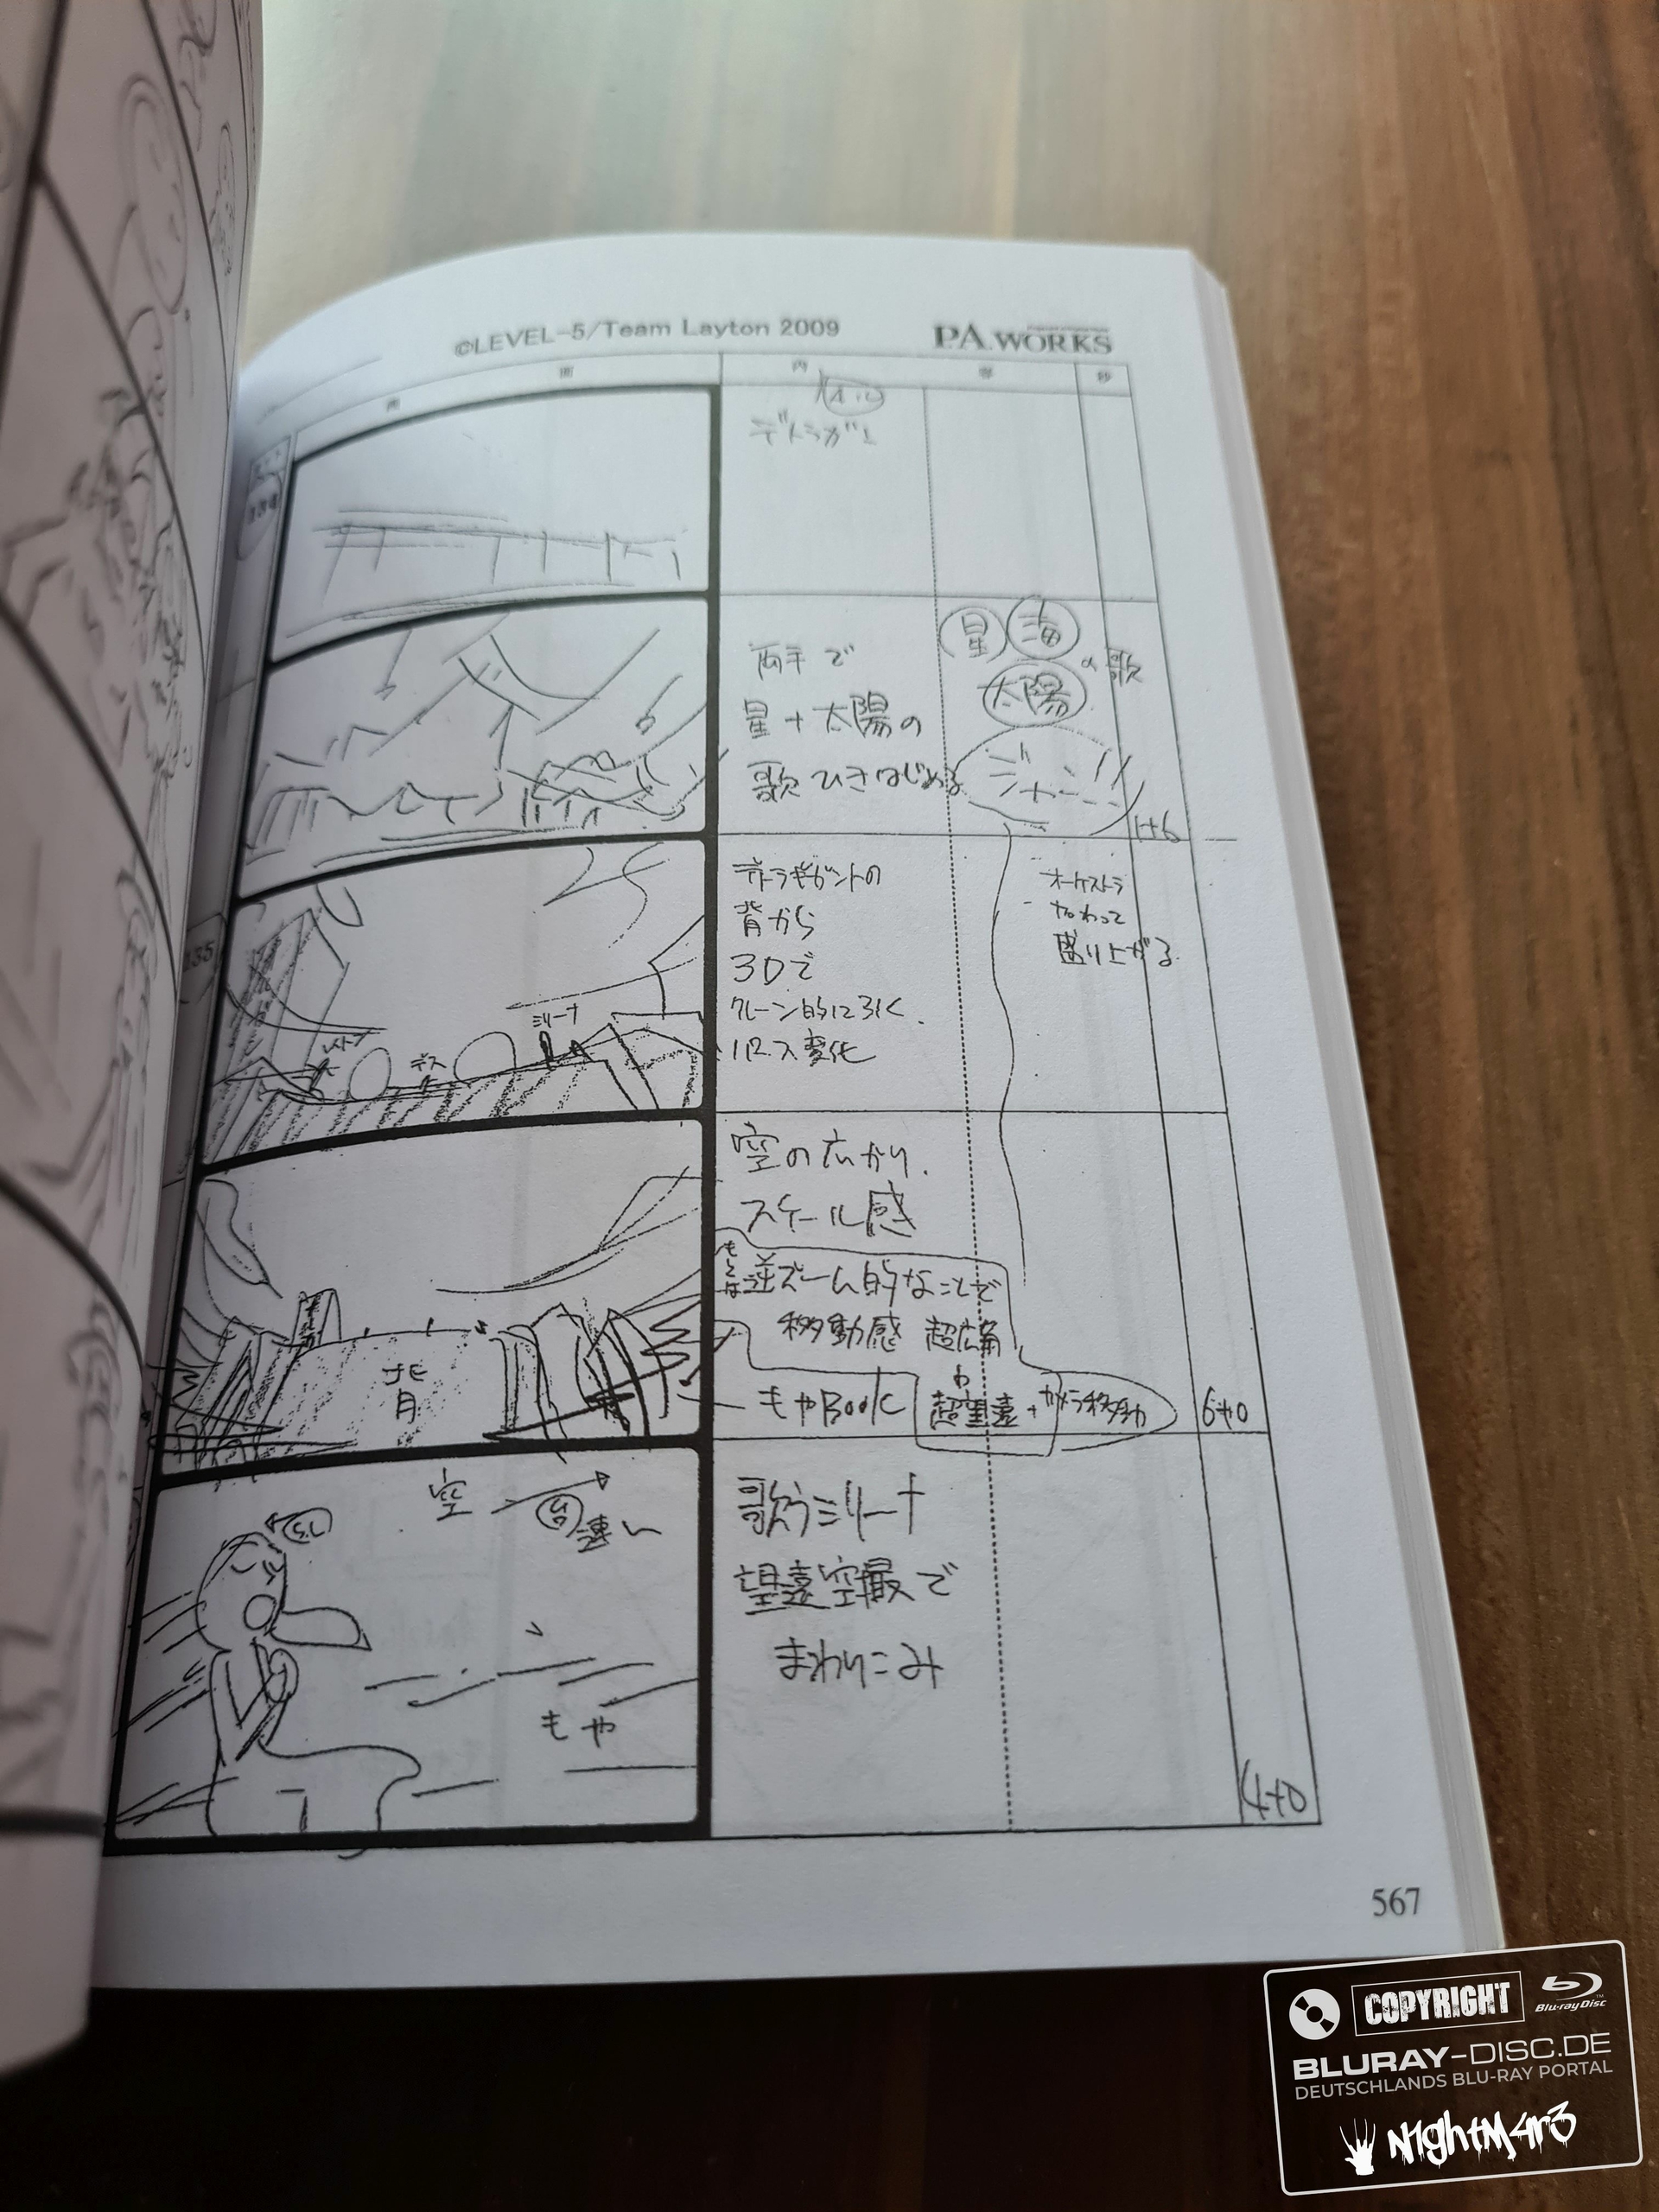 ©LEVEL-5/Team Layton 2009
P.A.WORKS
画
面
内
容
秒
両手で
星+太陽の
歌ひきはじめる
星
海
太陽
の歌
ジャーン!!
1+6
135
レイトン
デス
ミリーナ
背から
3Dで
クレーン的に引く.
パース変化
オーケストラ
加わって
盛り上がる
背
空の広がり.
スケール感
もしくは
逆ズーム的なことで
移動感 超広角
もやBook
超望遠+カメラ移動
6+0
空
台
速い
もや
歌うミリーナ
望遠空撮で
まわりこみ
4+0
567
COPYRIGHT
Blu-ray Disc
BLURAY-DISC.DE
DEUTSCHLANDS BLU-RAY PORTAL
N1ghtM4r3